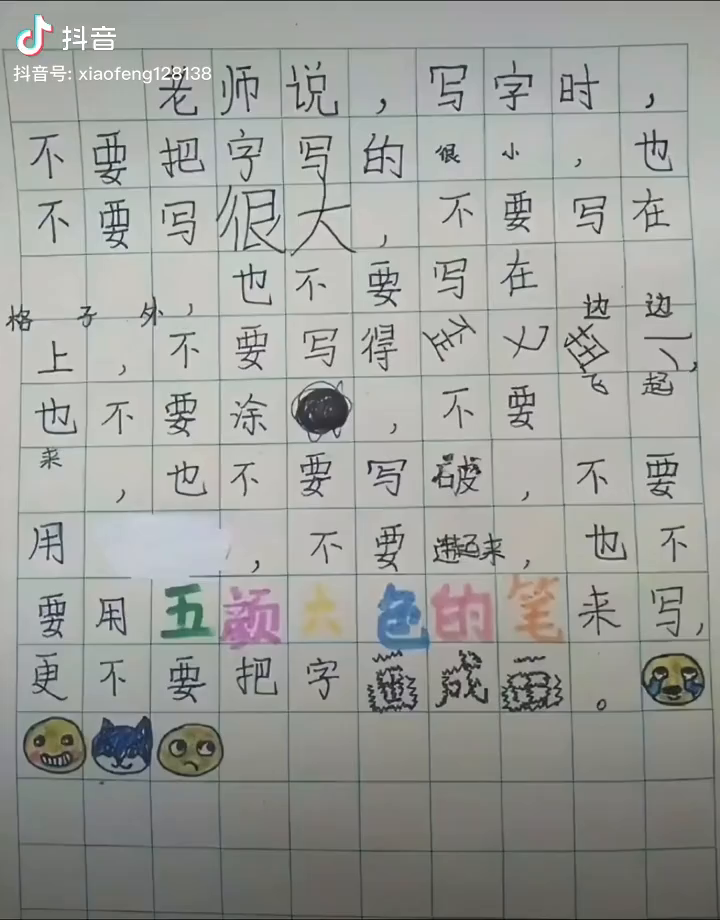 抖音
抖音号: xiaofeng128138
老师说，写字时，
不要把字写的很小，也
不要写很大，不要写在
格子外，也不要写在边边
上，不要写得歪七扭八，
也不要涂，不要飞起
来，也不要写破，不要
用，不要连起来，也不
要用五颜六色的笔来写，
更不要把字画成画。